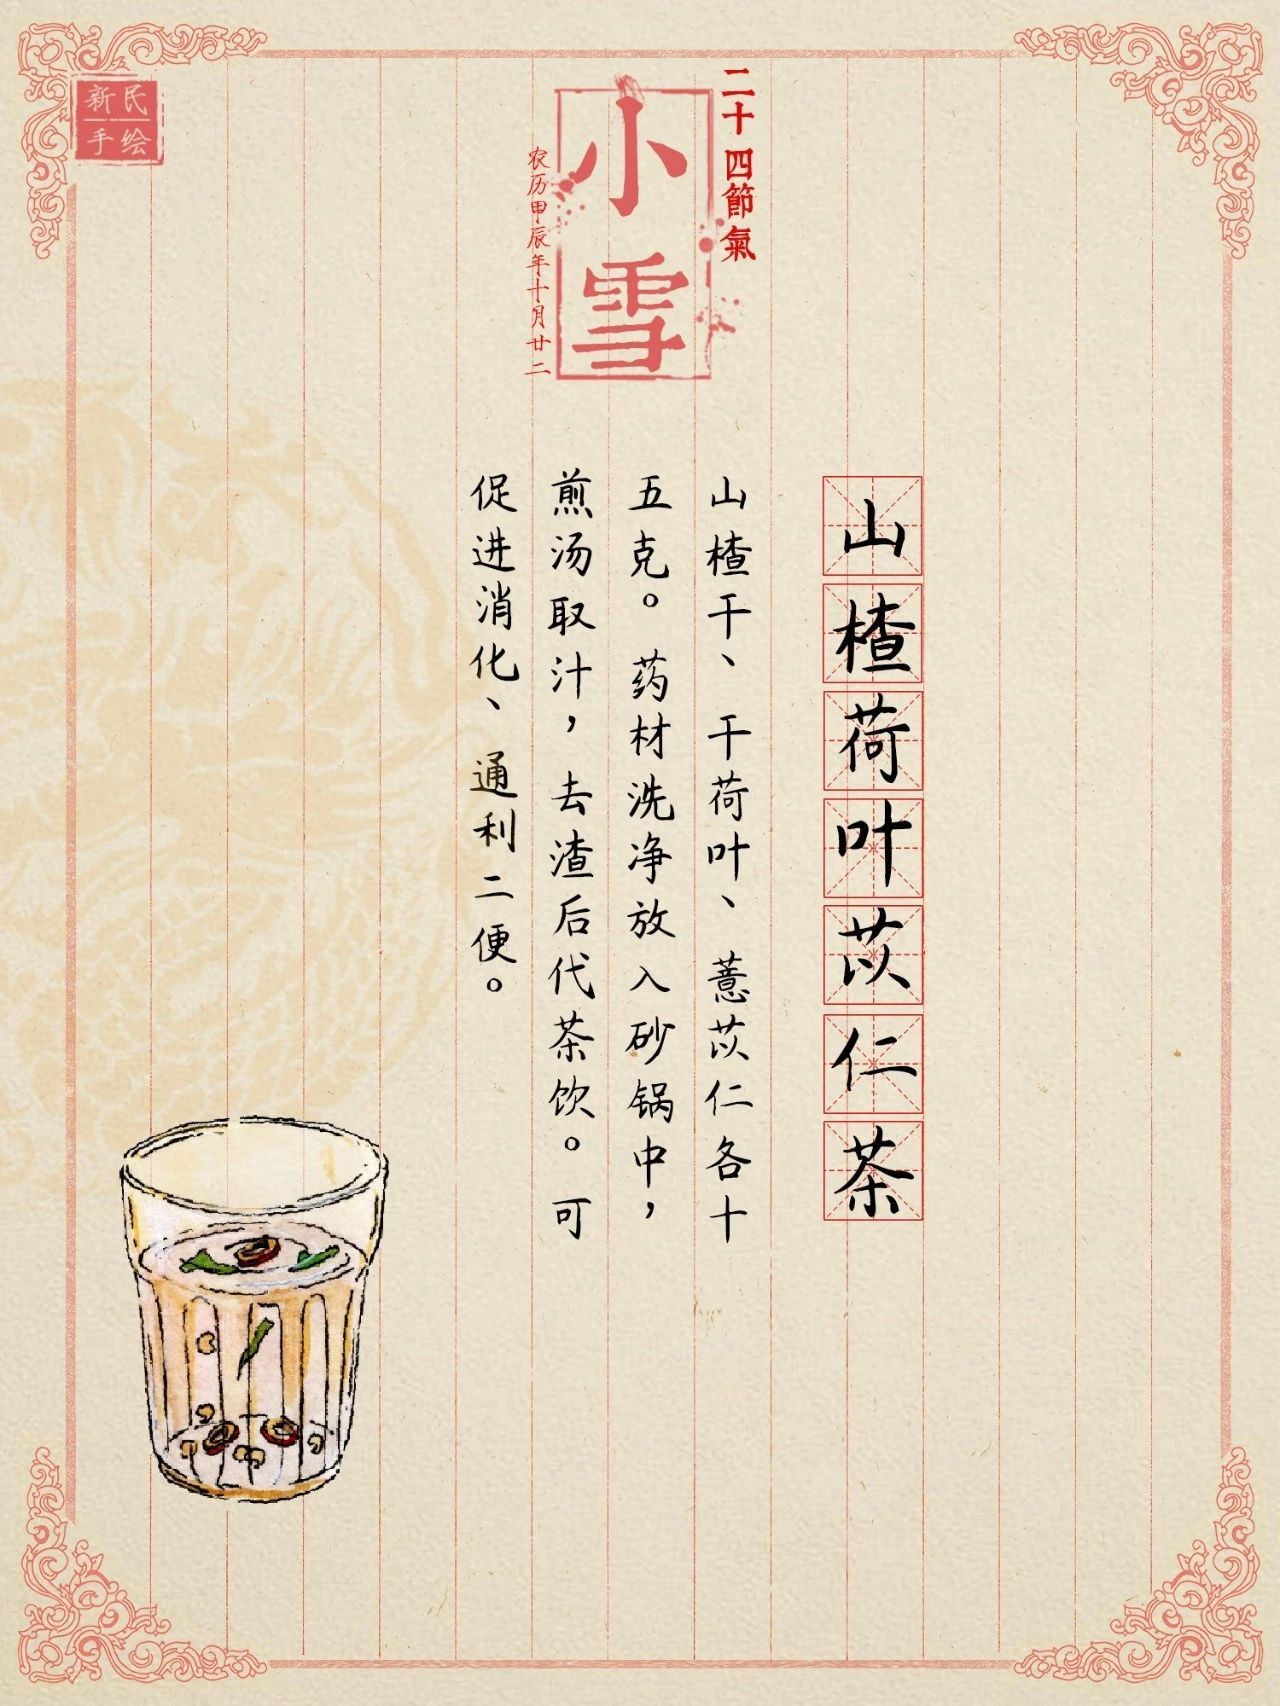 新民
手绘
二十四節氣
小雪
农历甲辰年十月廿二
山楂荷叶苡仁茶
山楂干、干荷叶、薏苡仁各十
五克。药材洗净放入砂锅中，
煎汤取汁，去渣后代茶饮。可
促进消化、通利二便。